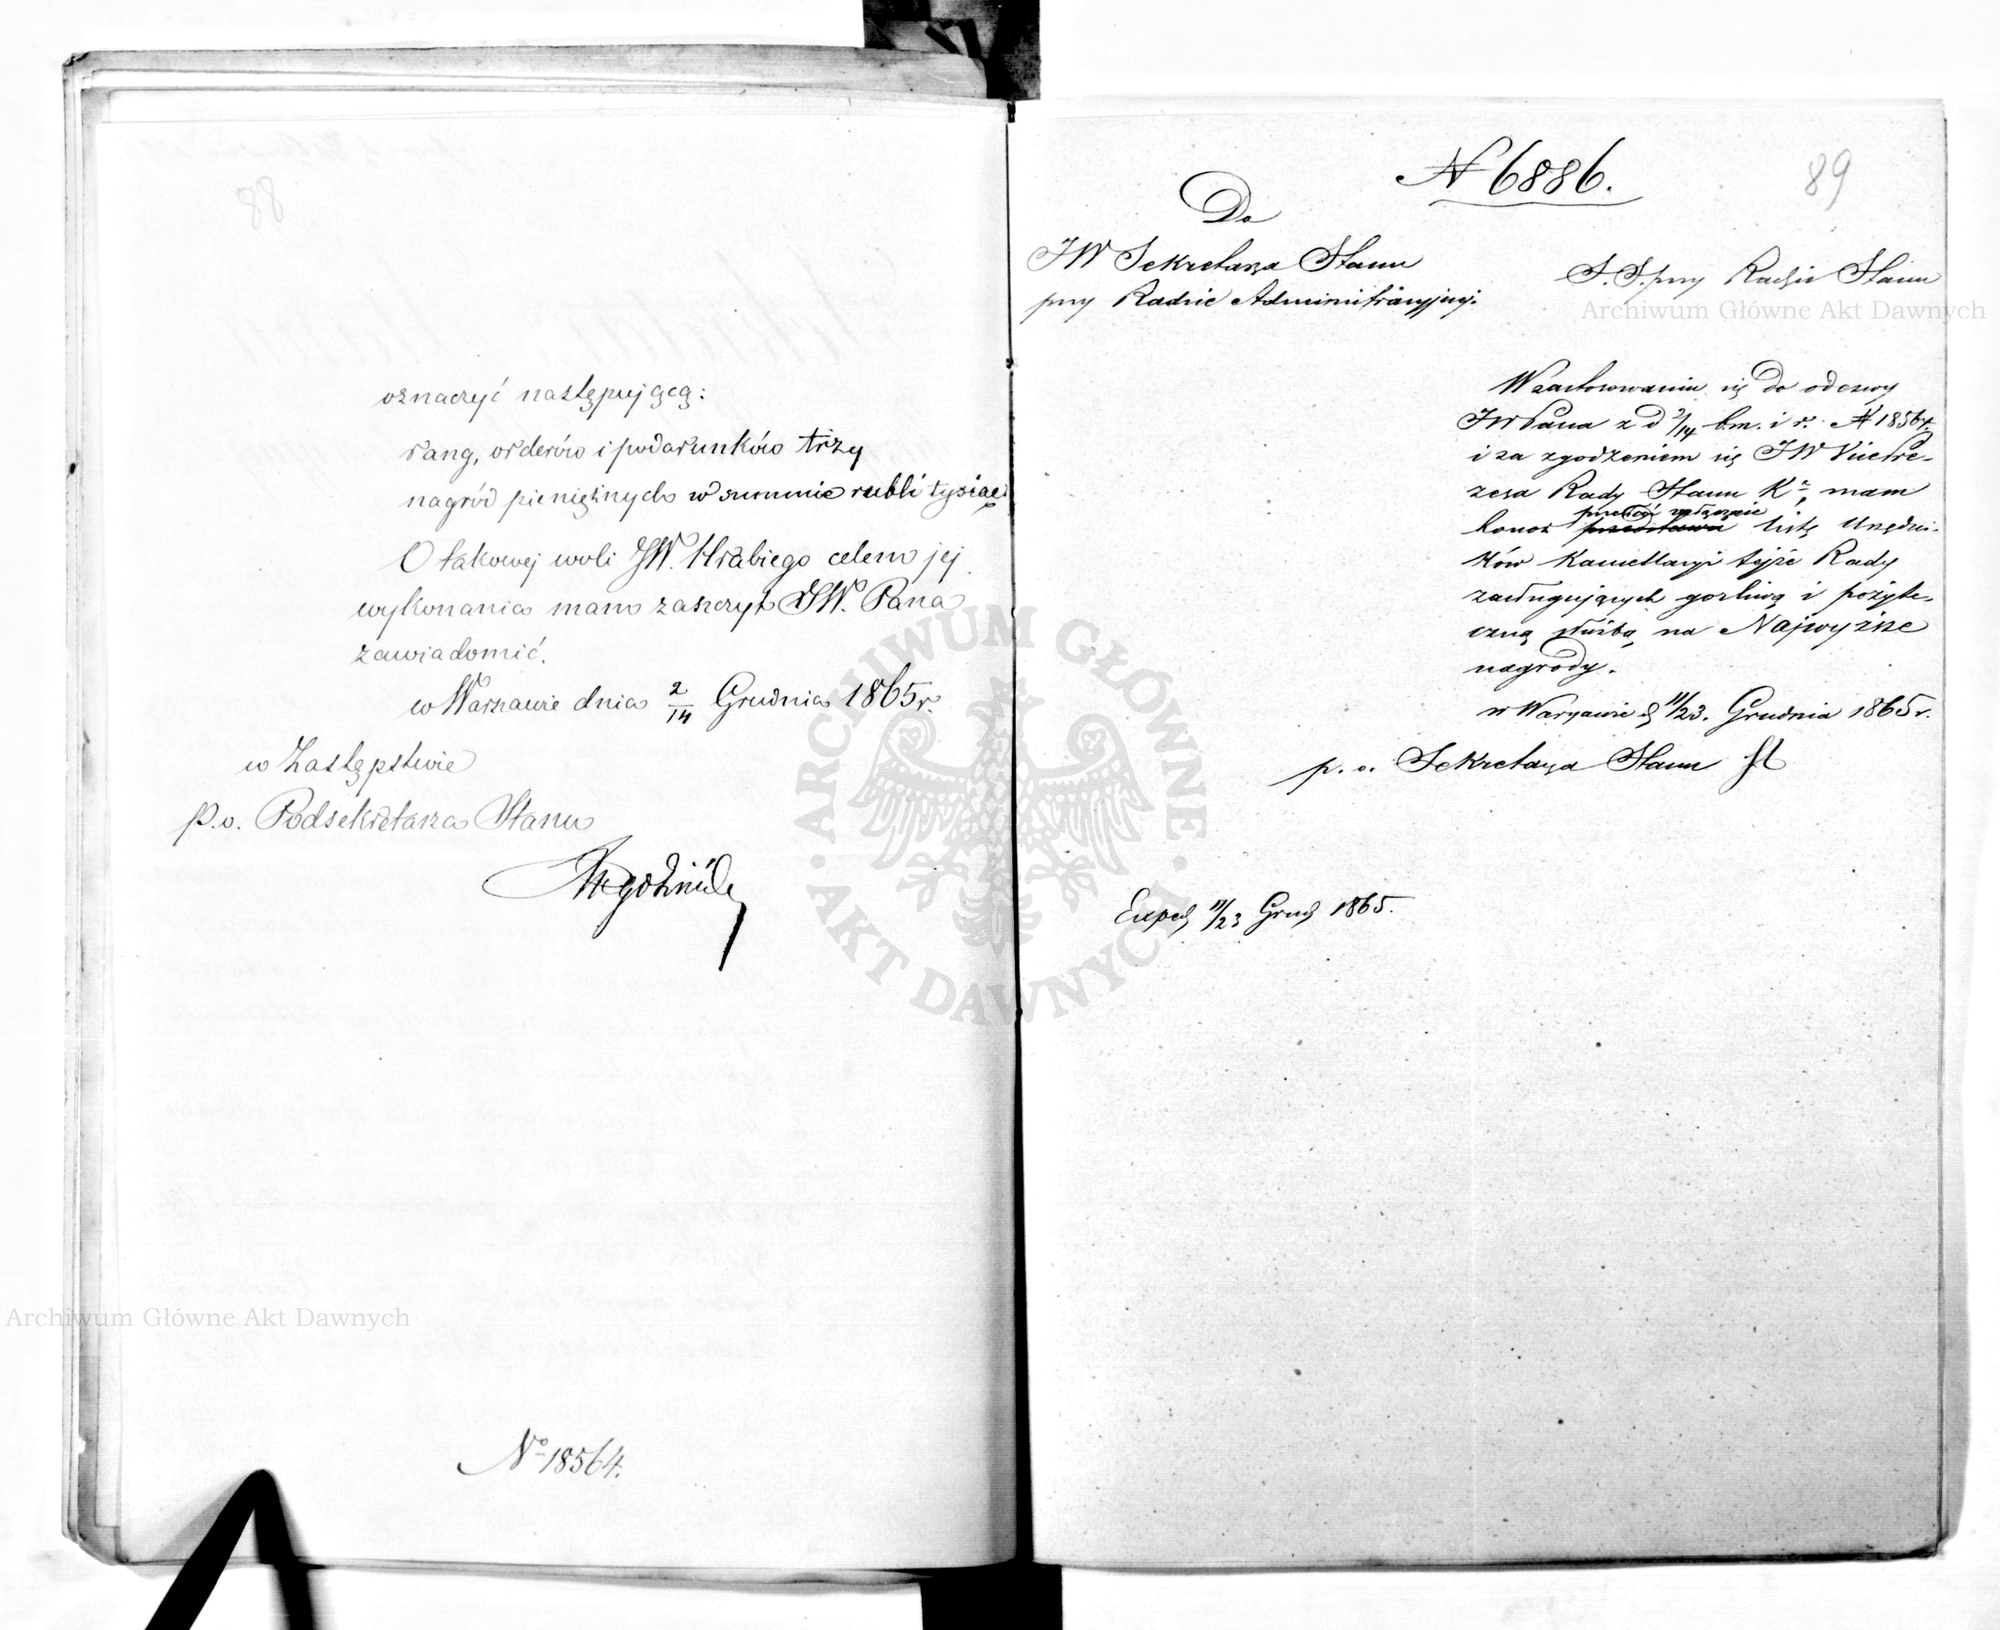 oznaczyć następującą:
rang, orderów i podarunków trzy
nagród pieniężnych w summie rubli tysiąc
O takowej woli JW. Hrabiego celem jej
wykonania mam zaszczyt JW. Pana
zawiadomić.
w Warszawie dnia 2/14 Grudnia 1865 r.
w Zastępstwie
p.o. Podsekretarza Stanu
No 18564.
N 6886.
89
Do
JW Sekretarza Stanu
przy Radzie Administracyjnej.
S. S. przy Radzie Stanu
W zastosowaniu się do odezwy
JW Pana z d 2/14 b.m. i r. N 18564.
i za zgodzeniem się JW Vicepre-
zesa Rady Stanu Kr, mam
honor przesłać w listę Urzędni-
ków Kancellaryi tejże Rady
zasługujących gorliwą i pożyte-
czną służbą na Najwyższe
nagrody.
w Warszawie d 11/23. Grudnia 1865 r.
p. o. Sekretarza Stanu
Exped 11/23 Grud 1865.
Archiwum Główne Akt Dawnych
Archiwum Główne Akt Dawnych
ARCHIWUM GŁÓWNE · AKT DAWNYCH ·
88